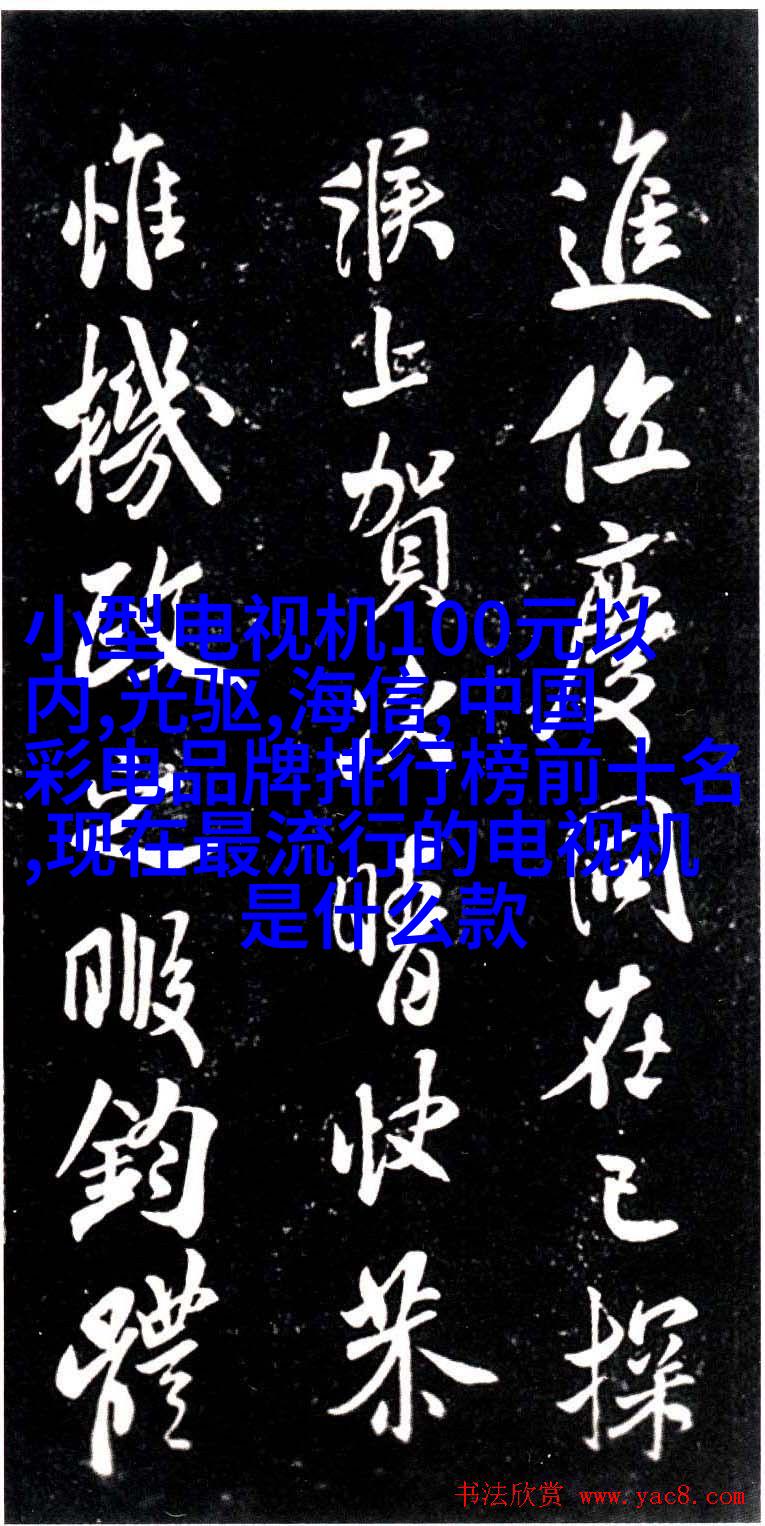 進位慶同在已探
候上賀次晴快恭
惟機政之暇鈞體
小型电视机100元以
内,光驱,海信,中国
彩电品牌排行榜前十名
,现在最流行的电视机
是什么款
书法欣赏 www.yac8.com